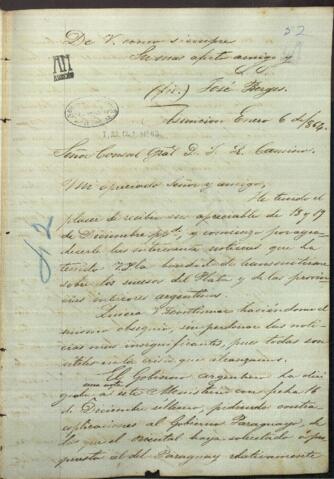 52
De V. como siempre
Su mas afecto amigo y
S. S.
(fir.) José Berges.
Asuncion Enero 6 de 1864.
Señor Consul Gral D. J. R. Caminos.
Mi apreciado Señor y amigo,
He tenido el
placer de recibir su apreciable de 15 y 17
de Diciembre ppdo, y comienzo por agra-
decerle las interesantes noticias que ha
tenido V. la bondad de transmitirme
sobre los sucesos del Plata y de las provin-
cias interiores argentinas.
V. continuar haciéndome el
mismo obsequio, sin perdonar las noti-
cias mas insignificantes, pues todas son
utiles en la crisis que alcanzamos.
El Gobierno argentino ha diri-
gido una nota a este Ministerio con fecha 16
de Diciembre último, pidiendo contra
esplicaciones al Gobierno Paraguayo, de
las que el oriental haya solicitado
puesta al del Paraguay relativamente
42